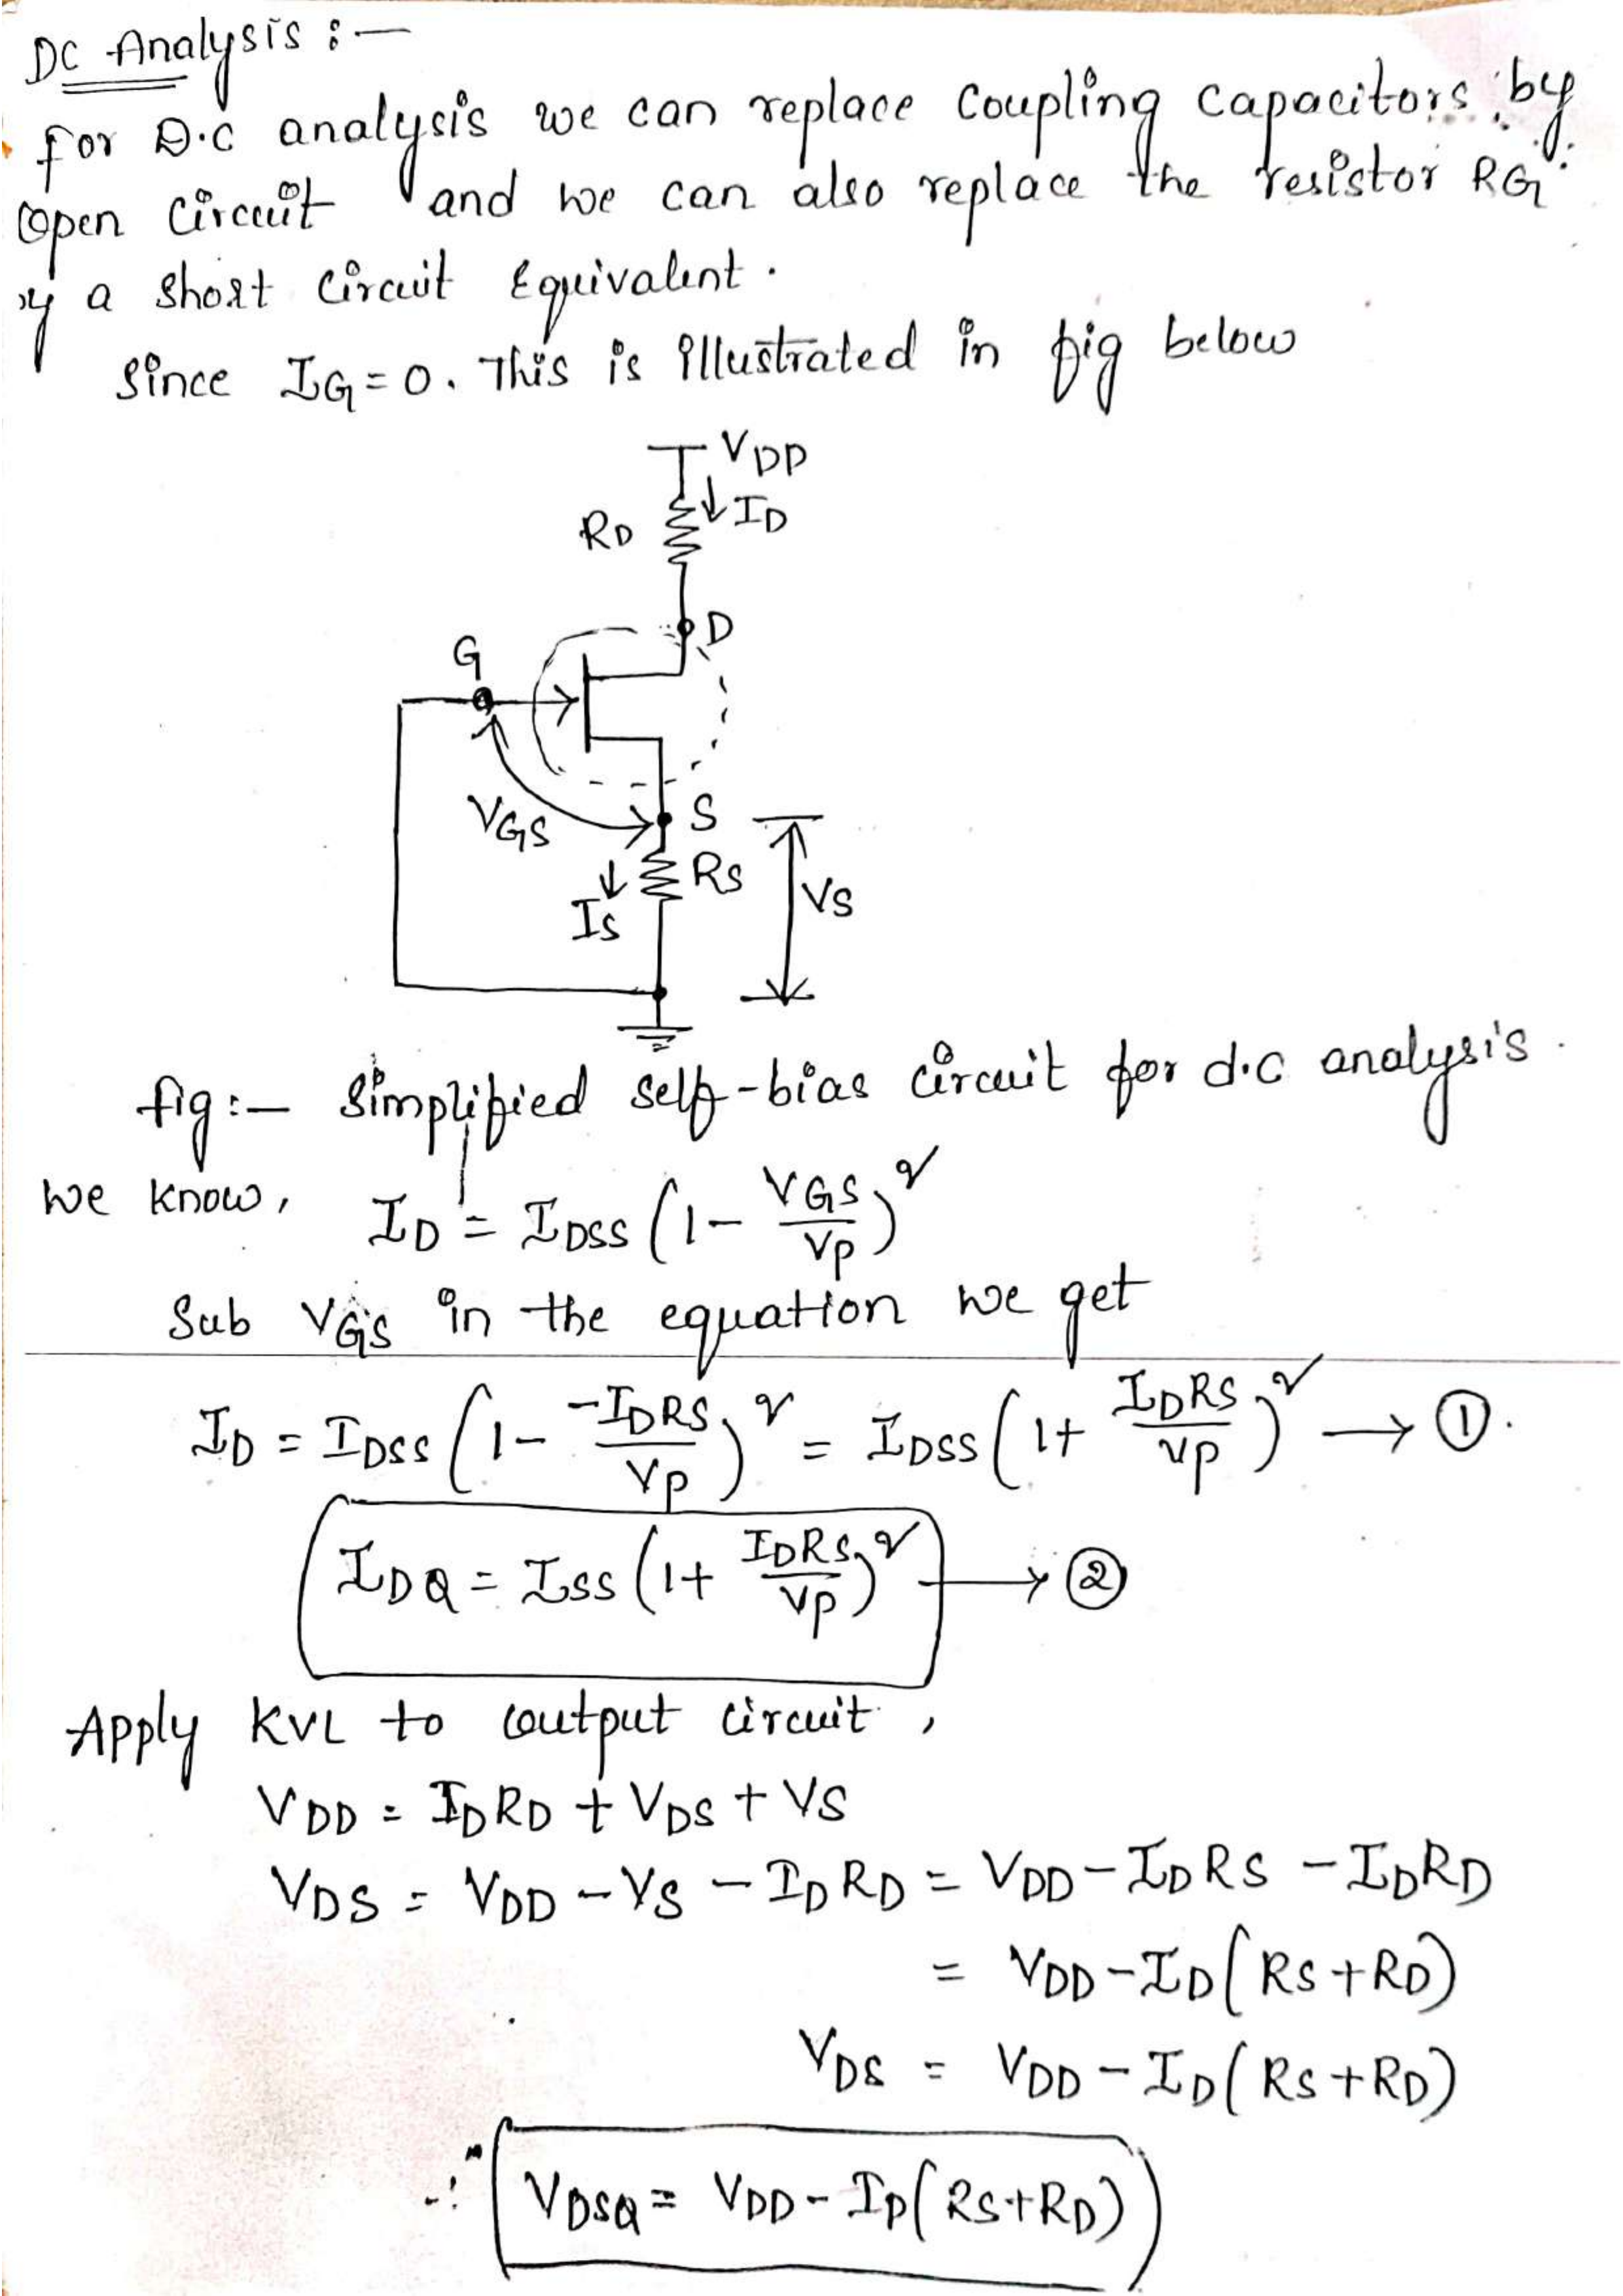 DC Analysis :-
For D.C analysis we can replace coupling capacitors by
open circuit and we can also replace the resistor RG
by a short circuit equivalent.
Since IG = 0. This is illustrated in fig below
VDD
ID
RD
D
G
VGS
S
RS
IS
VS
fig :- Simplified self-bias circuit for d.c analysis.
We know, ID = IDSS (1 - VGS/VP)²
Sub VGS in the equation we get
ID = IDSS (1 - -IDRS/VP)² = IDSS (1 + IDRS/VP)² → ①.
IDQ = ISS (1 + IDRS/VP)² → ②
Apply KVL to output circuit,
VDD = IDRD + VDS + VS
VDS = VDD - VS - IDRD = VDD - IDRS - IDRD
= VDD - ID(RS + RD)
VDS = VDD - ID(RS + RD)
∴ VDSQ = VDD - ID(RS + RD)